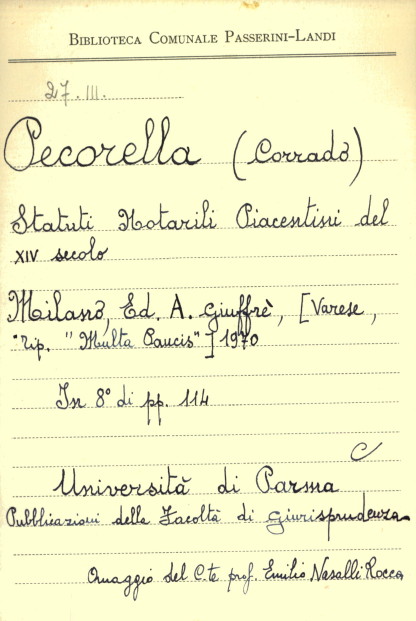 BIBLIOTECA COMUNALE PASSERINI-LANDI
27. III.
Pecorella (Corrado)
Statuti Notarili Piacentini del
XIV secolo
Milano, Ed. A. Giuffrè, [Varese,
"Tip. "Multa Paucis"] 1970
In 8° di pp. 114
C
Università di Parma
Pubblicazioni della Facoltà di Giurisprudenza
Omaggio del C.te prof. Emilio Nasalli Rocca